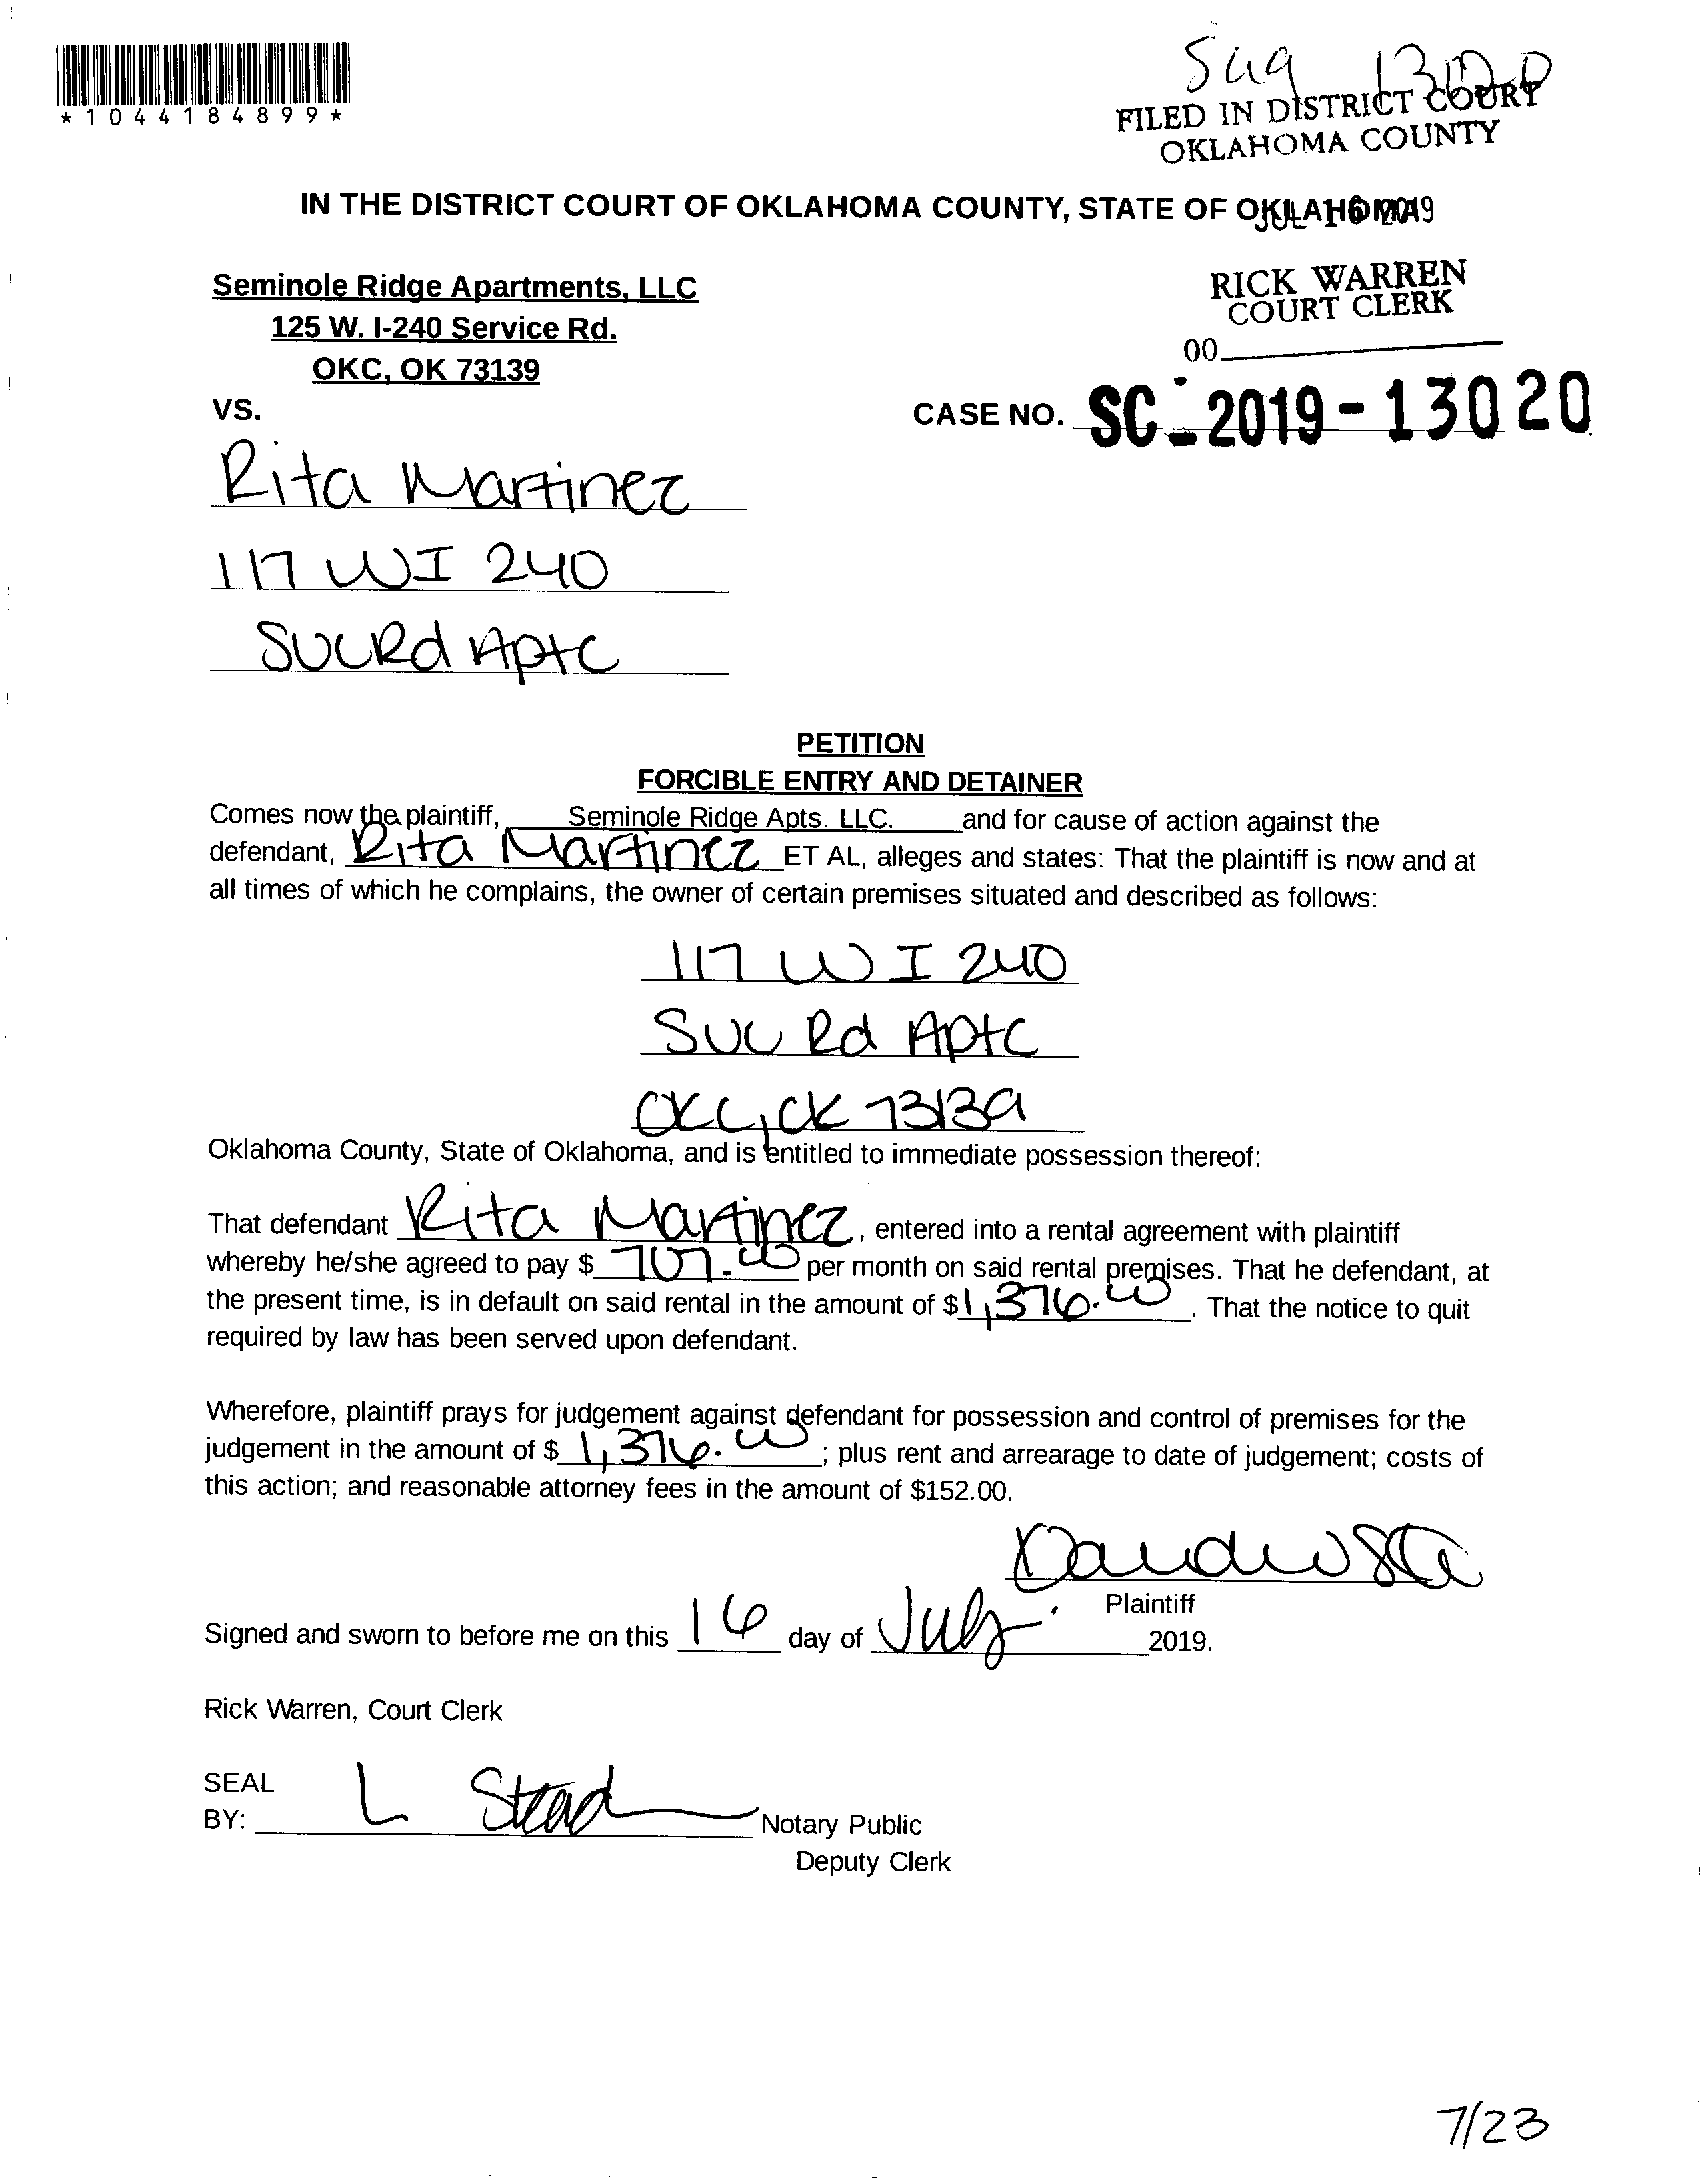 *1044184899*
FILED IN DISTRICT COURT
OKLAHOMA COUNTY
IN THE DISTRICT COURT OF OKLAHOMA COUNTY, STATE OF OKLAHOMA
JUL 16 2019
Seminole Ridge Apartments, LLC
125 W. I-240 Service Rd.
OKC, OK 73139
RICK WARREN
COURT CLERK
00
VS.
CASE NO. SC-2019-13020
Rita Martinez
117 W I 240
SVC Rd Apt C
PETITION
FORCIBLE ENTRY AND DETAINER
Comes now the plaintiff, Seminole Ridge Apts. LLC. and for cause of action against the
defendant, Rita Martinez ET AL, alleges and states: That the plaintiff is now and at
all times of which he complains, the owner of certain premises situated and described as follows:
117 W I 240
SVC Rd Apt C
OKC, OK 73139
Oklahoma County, State of Oklahoma, and is entitled to immediate possession thereof:
That defendant Rita Martinez, entered into a rental agreement with plaintiff
whereby he/she agreed to pay $ 707.00 per month on said rental premises. That he defendant, at
the present time, is in default on said rental in the amount of $1,376.00. That the notice to quit
required by law has been served upon defendant.
Wherefore, plaintiff prays for judgement against defendant for possession and control of premises for the
judgement in the amount of $ 1,376.00; plus rent and arrearage to date of judgement; costs of
this action; and reasonable attorney fees in the amount of $152.00.
Plaintiff
Signed and sworn to before me on this 16 day of July 2019.
Rick Warren, Court Clerk
SEAL
BY: L Stead Notary Public
Deputy Clerk
7/23